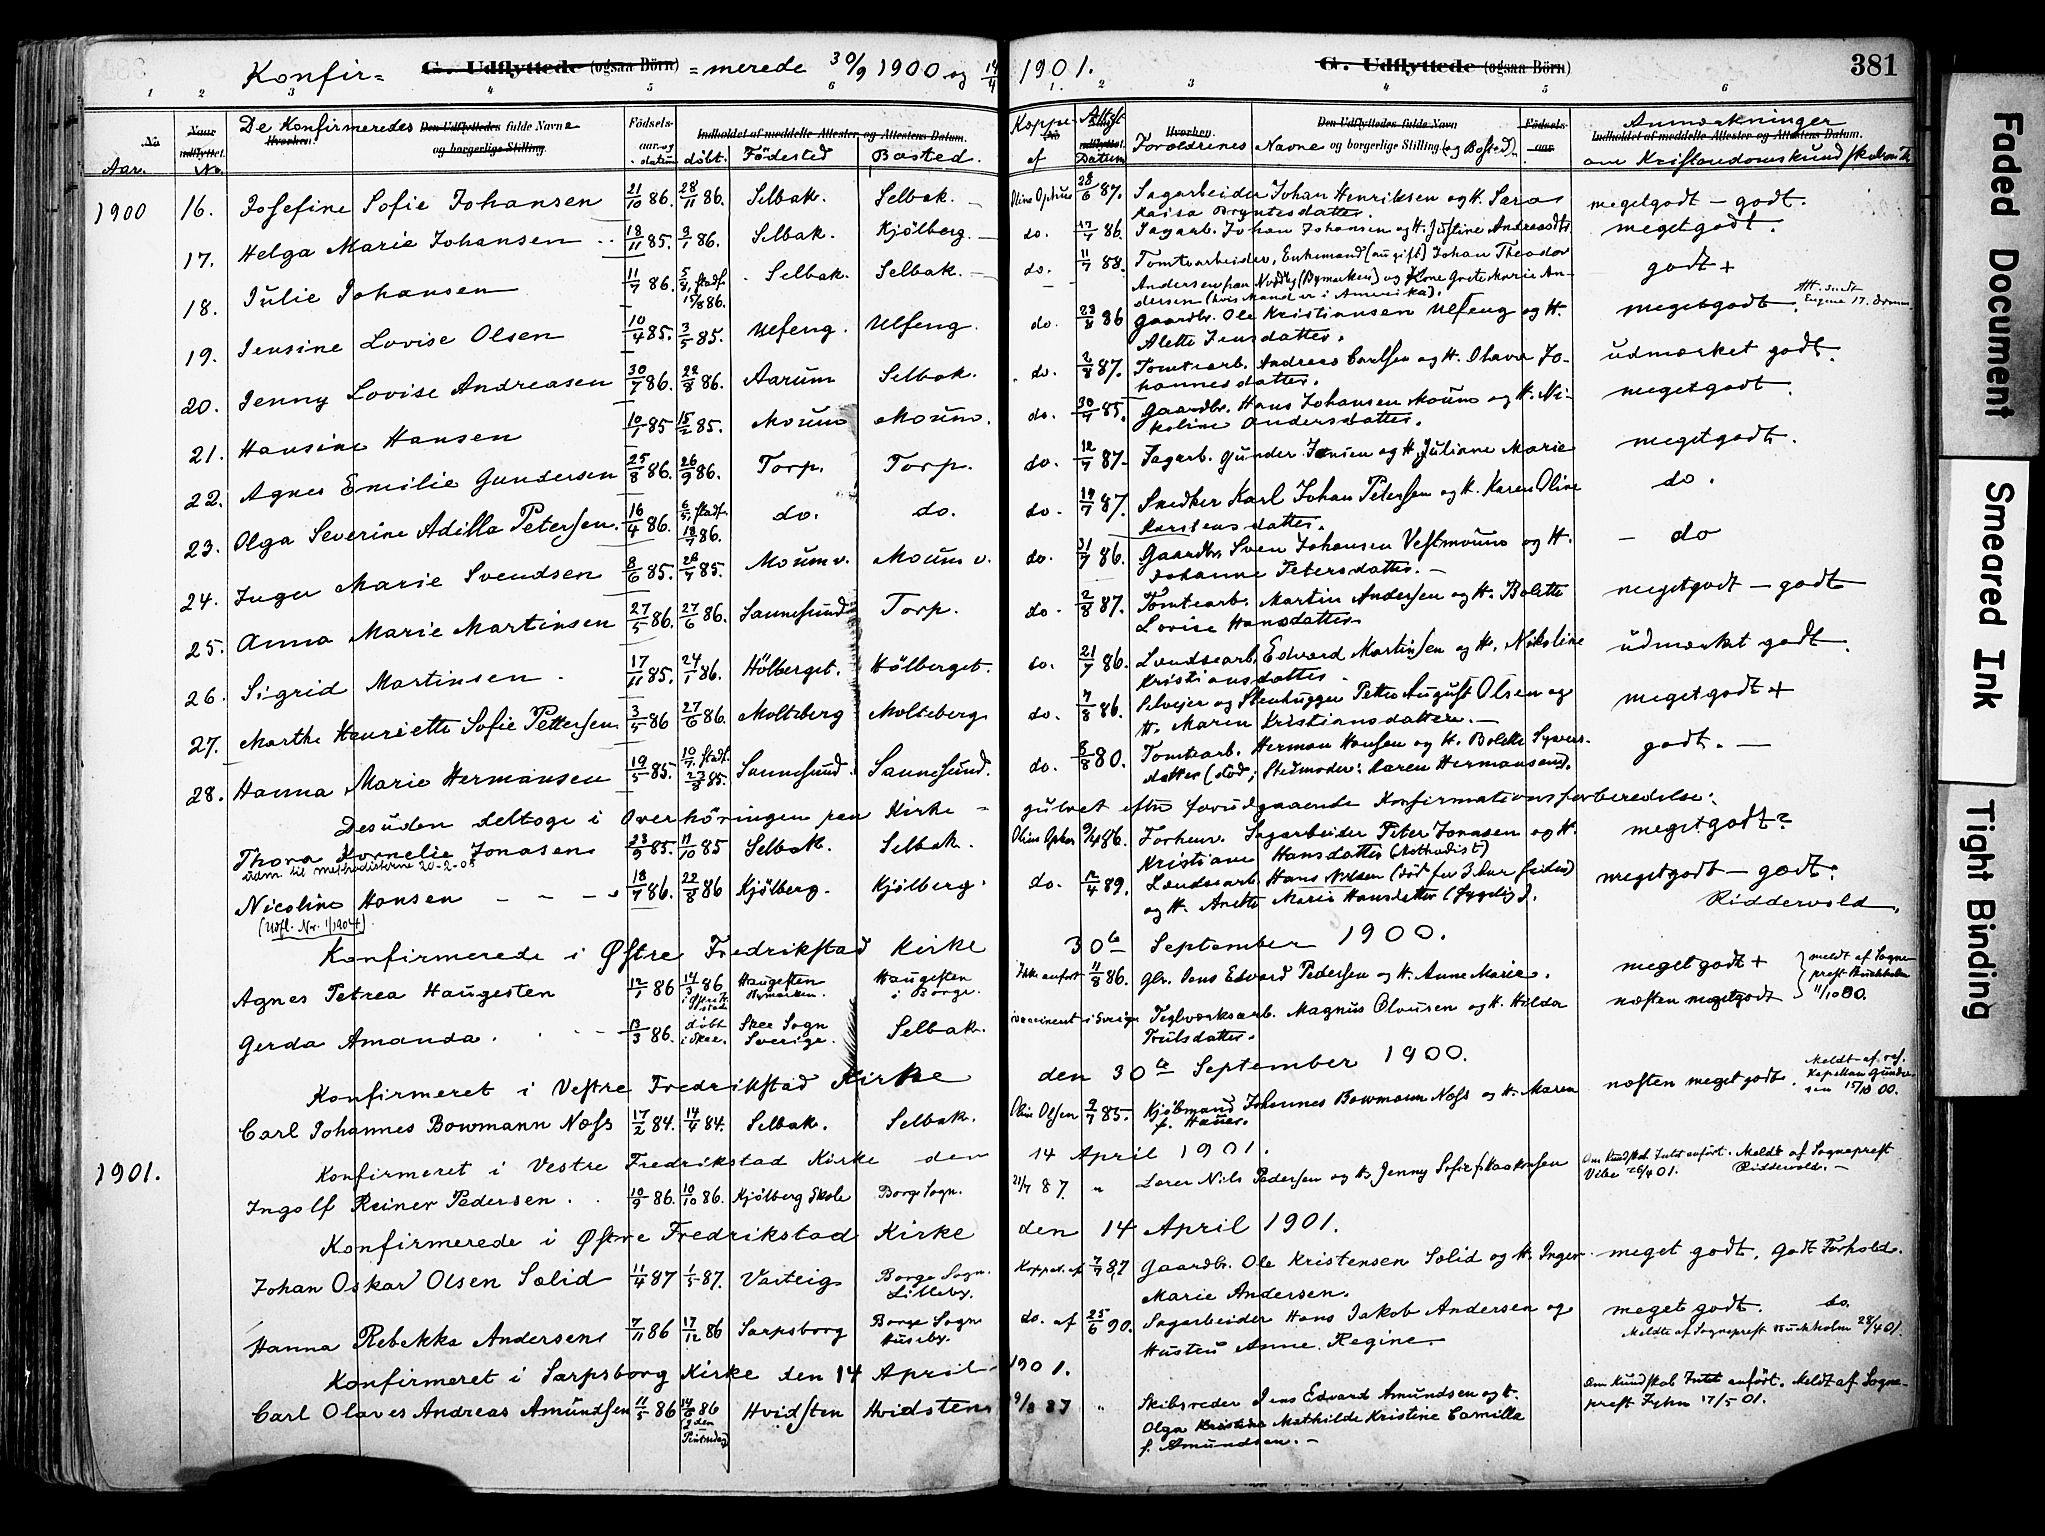 Konfir= G. Udflyttede (ogsaa Börn) =merede 30/9 1900 og 14/4 1901. G. Udflyttede (ogsaa Börn) 381
1 2 3 4 5 6 1. 2 3 4 5 6
No Naar udflyttet. De Konfirmeredes Den Udflyttedes fulde Navne Hvorhen. og borgerlige Stilling. Födsels- aar og datum Indholdet af meddelte Attester og Attestens Datum. döbt. Födested Bosted.
Aar. No.
Koppe af Attest Datum Hvorhen. Forældrenes Navne Den Udflyttedes fulde Navn og borgerlige Stilling (og Bosted). Födsels- aar Anmærkninger Indholdet af meddelte Attester og Attestens Datum. om Kristendomskundskaben
1900 16. Josefine Sofie Johansen 21/10 86. 28/11 86. Selbak. Selbak. 28/6 87. Sagarbeider Johan Henriksen og H. Sara megetgodt - godt.
Kaisa Bryntesdatter.
17. Helga Marie Johansen 18/11 85. 3/1 86. Selbak. Kjölberg. do. 17/7 86. Sagarb. Johan Johansen og H. Justine Andreasdtr meget godt.
18. Julie Johansen 11/7 86. 5/9, stadf. 15/8 86. Selbak. Selbak. do. 11/7 88. Tomtearbeider, Enkemand (angift) Johan Theodor godt +
Andersen fra (Bymarken) og Kone Grete Marie An-
dersen (hvis Mand er i Amerika).
19. Jensine Lovise Olsen 10/4 85. 3/5 85. Ulfeng. Ulfeng. do. 23/8 86 Gaardbr. Ole Kristiansen Ulfeng og H. megetgodt.
Alette Jensdatter.
20. Jenny Lovise Andreasen 30/7 86. 22/8 86. Aarum Selbak. do. 2/8 87. Tomtearb. Andreas Carlsen og H. Olava Jo- udmærket godt.
hannesdatter.
21. Hansine Hansen 10/1 85 15/2 85. Moum Moum. do. 30/7 85. Gaardbr. Hans Johansen Moum og H. Ni- megetgodt.
koline Andersdatter.
22. Agnes Emilie Gundersen 25/8 86. 26/9 86. Torp. Torp. do. 12/7 87. Sagarb. Gunder Jensen og H. Juliane Marie megetgodt.
23. Olga Severine Adilla Petersen. 16/4 86. 6/5, stadf. 18/7 86. do. do. do. 19/7 87. Snedker Karl Johan Petersen og H. Karen Oline do.
Karstensdatter.
24. Inger Marie Svendsen 8/6 85. 26/7 85. Moum v. Moum v. do. 31/7 86. Gaardbr. Sven Johansen Vestmoum og H. - do
Johanne Petersdatter. -
25. Anna Marie Martinsen 27/5 86. 27/6 86. Sannesund Torp. do. 2/8 87. Tomtearb. Martin Andersen og H. Bolette megetgodt - godt
Lovise Hansdatter
26. Sigrid Martinsen. 17/11 85. 24/1 86. Hölberget. Hölberget. do. 21/7 86. Landsearb. Edvard Martinsen og H. Nikoline udmærket godt.
Kristiansdatter.
27. Marthe Henriette Sofie Pettersen 3/5 86 27/6 86. Molteberg Molteberg do. 7/8 86. Selveier og Stenhugger Petter August Olsen og megetgodt +
H. Maren Kristiansdatter. -
28. Hanna Marie Hermansen 19/5 85. 10/7, stadf. 23/8 85. Sannesund. Sannesund. do. 8/8 80. Tomtearb. Herman Hansen og H. Bolette Syvers- godt. -
datter (död; Stedmoder: Karen Hermansen).
Desuden deltoge i Overhöringen paa Kirke- gulvet efter forudgaaende Konfirmationsforberedelse:
Thora Kornelie Jonasen 23/9 85. 11/10 85 Selbak. Selbak. 9/4 86. Forhenv. Sagarbeider Peter Jonasen og H. megetgodt?
udm. til methodisterne 20-2-05 Kristiane Hansdatter (Methodist)
Nicoline Hansen 18/7 86. 22/8 86 Kjölberg. Kjölberg. do. 12/4 89. Landsearb. Hans Nilsen (död for 3 Aar siden) megetgodt - godt.
(Udfl. Nr. 1/1904) og H. Anette Marie Hansdatter (sygelig). Riddervold.
Konfirmerede i Østre Fredrikstad Kirke 30te September 1900.
Agnes Petrea Haugesten 12/1 86 14/3 86 Haugesten Bymarken. Haugesten i Borge. Ikke anfört 11/8 86. Gbr. Jens Edvard Pedersen og H. Anne Marie. meget godt + meldt af Sogne-
prest Buchholm 11/10 00.
Gerda Amanda. 13/3 86. döbt i Skee. Skee Sogn Sverige. Selbak. vaccineret i Sverige Teglværksarb. Magnus Olausen og H. Hilda næsten megetgodt
Trulsdatter.
Konfirmeret i Vestre Fredrikstad Kirke den 30te September 1900.
Carl Johannes Bowmann Næss 17/2 84. 14/4 84. Selbak. Selbak. Olin Olsen 9/7 85. Kjöbmand Johannes Bowmann Næss og H. Maren næsten meget godt. Meldt af res. Kapellan Gundersen 15/10 00.
f. Hauer.
1901. Konfirmeret i Vestre Fredrikstad Kirke den 14 April 1901.
Ingolf Reiner Pedersen. 10/9 86. 10/10 86. Kjölberg Skole Borge Sogn. 21/7 87. " Lærer Nils Pedersen og H. Jenny Sofie f. Haakonsen Om Kundskab Intet anfört. Meldt af Sogneprest
Vibe 26/4 01. Riddervold. -
Konfirmerede i Østre Fredrikstad Kirke den 14 April 1901.
Johan Oskar Olsen Sælid 11/4 87 1/5 87. Varteig Borge Sogn. Lilleby. Koppet af 7/7 87 Gaardbr. Ole Kristensen Sælid og H. Inger meget godt. Godt Forhold.
Marie Andersen.
Hanna Rebekka Andersen 7/11 86 17/12 86 Sarpsborg Borge Sogn Huseby. do. af 25/6 90. Sagarbeider Hans Jakob Andersen og meget godt. do.
Hustru Anne Regine. Meldte af Sogneprest Buchholm 28/4 01.
Konfirmeret i Sarpsborg Kirke den 14 April 1901.
Carl Olaves Andreas Amundsen 11/5 86 14/6 86 2den Pintsedag Hvidsten Hvidsten 19/8 87 " Skibsreder Jens Edvard Amundsen og H. Om Kundskab Intet anfört. Meldt af Sogne-
Olga Kristine Mathilde Kristine Camilla prest 17/5 01.
f. Amundsen. -
Faded Document
Smeared Ink
Tight Binding